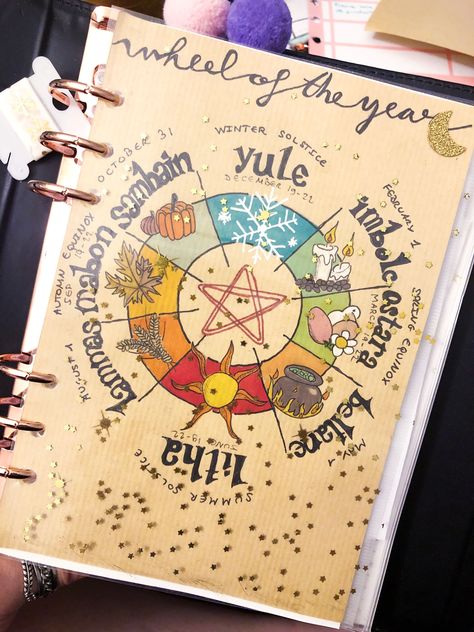 wheel of the year
WINTER SOLSTICE
yule
DECEMBER 19-22
FEBRUARY 1
imbolc
SPRING EQUINOX
ostara
MARCH
MAY 1
beltane
litha
JUNE 19-22
SUMMER SOLSTICE
AUGUST 1
lammas
AUTOMN EQUINOX
mabon
SEP 19-22
OCTOBER 31
samhain